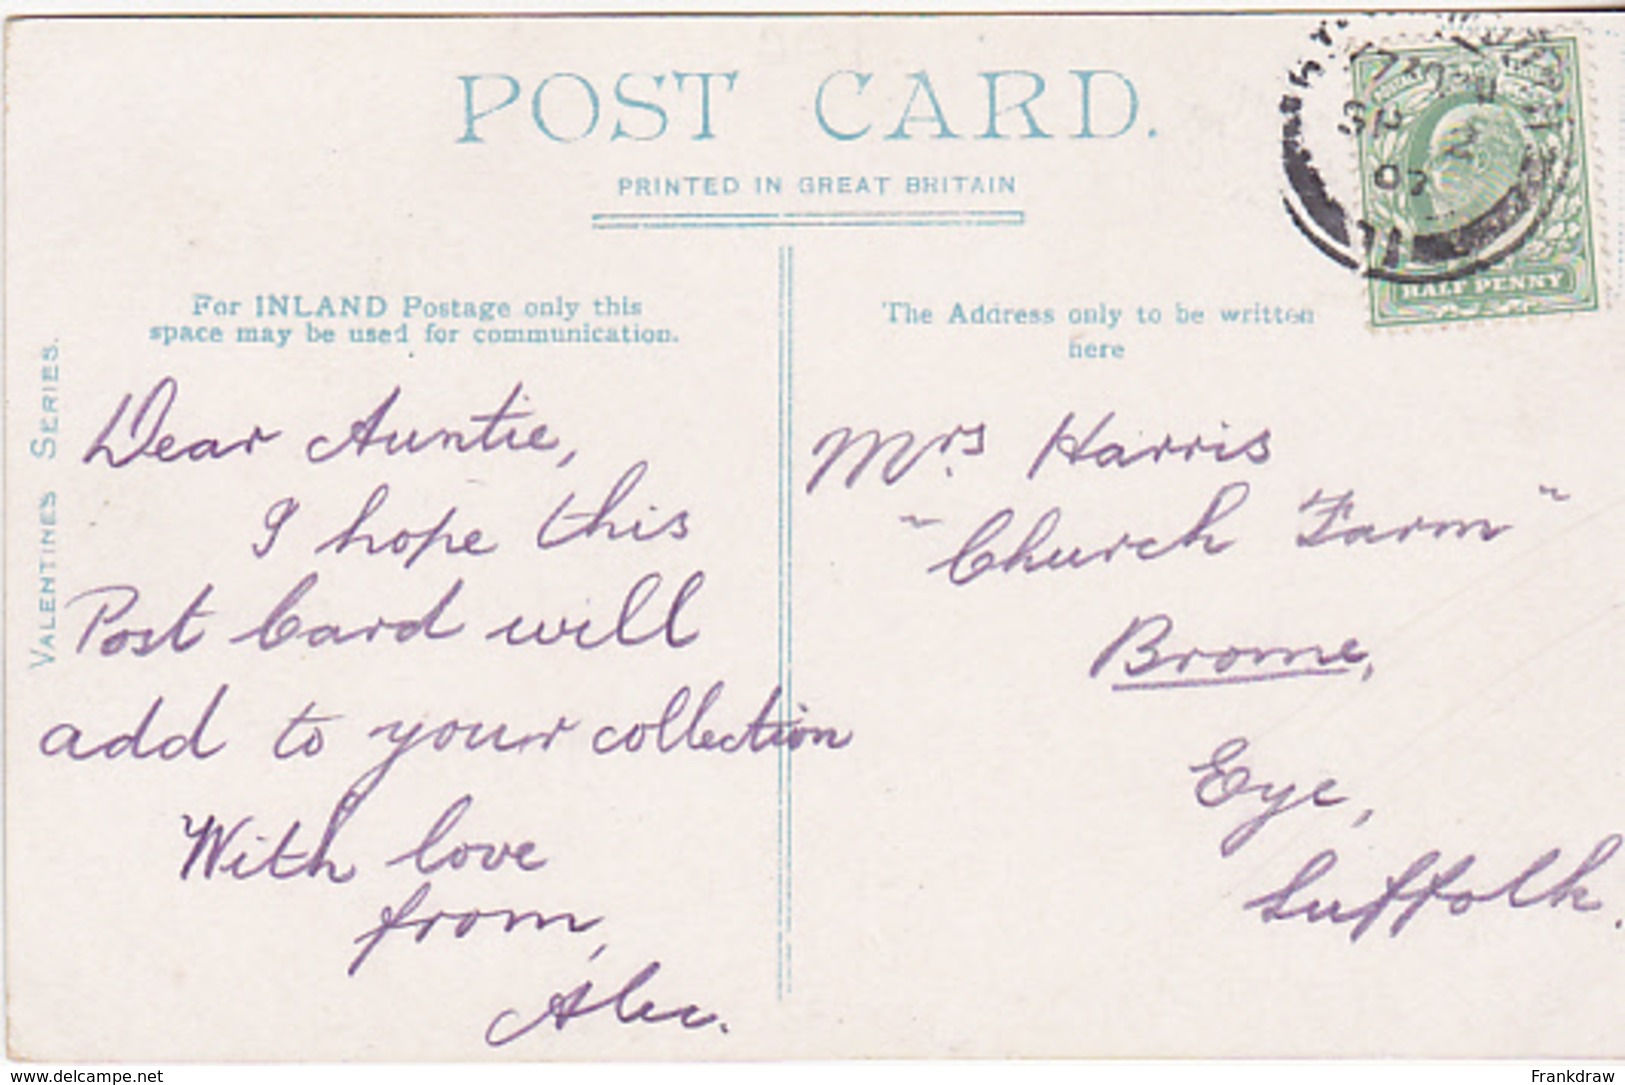 POST CARD.
PRINTED IN GREAT BRITAIN
For INLAND Postage only this
space may be used for communication.
The Address only to be written
here
VALENTINES SERIES.
HALF PENNY
Dear Auntie,
I hope this
Post Card will
add to your collection
With love
from,
Alec.
Mrs Harris
"Church Farm"
Brome,
Eye,
Suffolk.
www.delcampe.net
Frankdraw